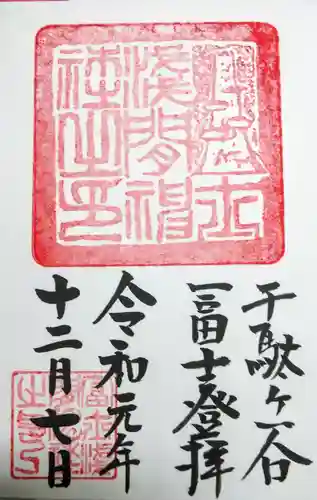 冨士浅間神社之印
千駄ヶ谷
冨士登拝
令和元年
十二月七日